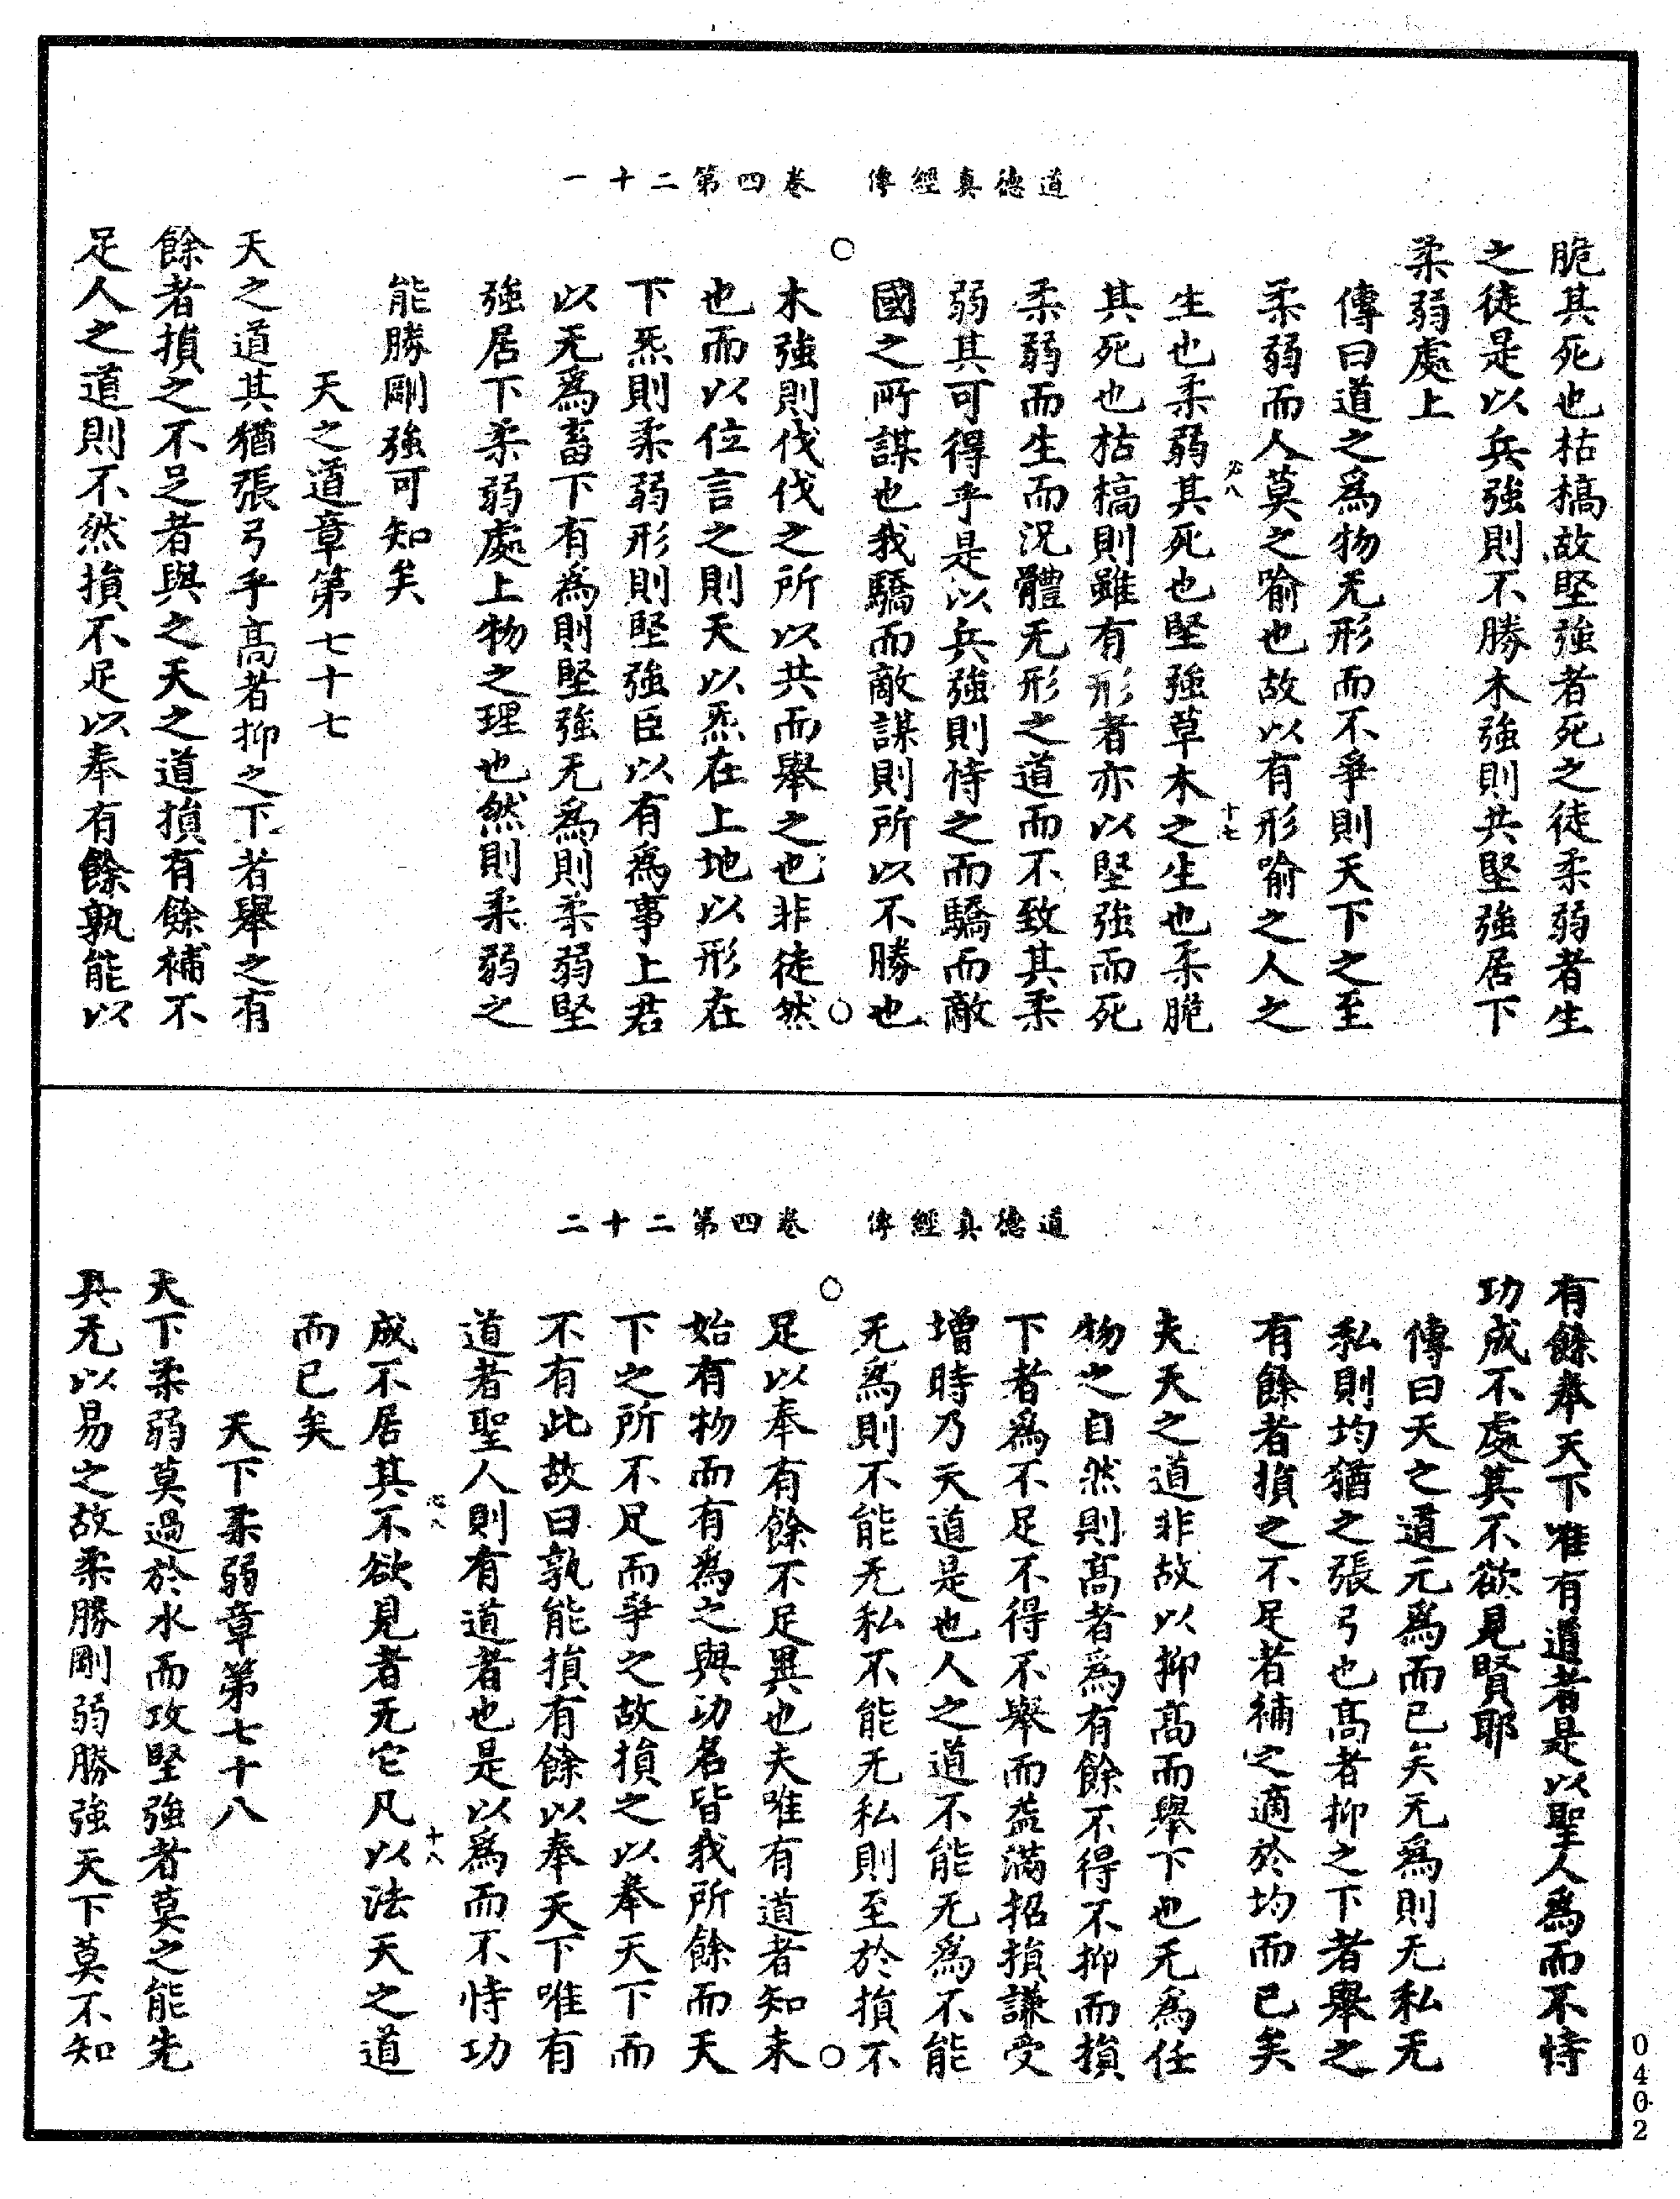 道德真經傳　卷四第二十一
脆其死也枯槁故堅強者死之徒柔弱者生
之徒是以兵強則不勝木強則共堅強居下
柔弱處上
傳曰道之爲物无形而不爭則天下之至
柔弱而人莫之喻也故以有形喻之人之
生也柔弱其死也堅強草木之生也柔脆
其死也枯槁則雖有形者亦以堅強而死
柔弱而生而況體无形之道而不致其柔
弱其可得乎是以兵強則恃之而驕而敵
國之所謀也我驕而敵謀則所以不勝也
木強則伐伐之所以共而舉之也非徒然
也而以位言之則天以炁在上地以形在
下炁則柔弱形則堅強臣以有爲事上君
以无爲畜下有爲則堅強无爲則柔弱堅
強居下柔弱處上物之理也然則柔弱之
能勝剛強可知矣
天之道章第七十七
天之道其猶張弓乎高者抑之下者舉之有
餘者損之不足者與之天之道損有餘補不
足人之道則不然損不足以奉有餘孰能以
十七
道德真經傳　卷四第二十二
有餘奉天下唯有道者是以聖人爲而不恃
功成不處其不欲見賢耶
傳曰天之道无爲而已矣无爲則无私无
私則均猶之張弓也高者抑之下者舉之
有餘者損之不足者補之適於均而已矣
夫天之道非故以抑高而舉下也无爲任
物之自然則高者爲有餘不得不抑而損
下者爲不足不得不舉而益滿招損謙受
增時乃天道是也人之道不能无爲不能
无爲則不能无私不能无私則至於損不
足以奉有餘不足異也夫唯有道者知未
始有物而有爲之與功名皆我所餘而天
下之所不足而爭之故損之以奉天下而
不有此故曰孰能損有餘以奉天下唯有
道者聖人則有道者也是以爲而不恃功
成不居其不欲見者无它凡以法天之道
而已矣
十八
天下柔弱章第七十八
天下柔弱莫過於水而攻堅強者莫之能先
其无以易之故柔勝剛弱勝強天下莫不知
0402